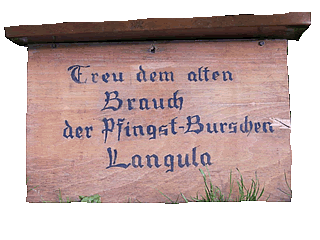 Treu dem alten
Brauch
der Pfingst-Burschen
Langula